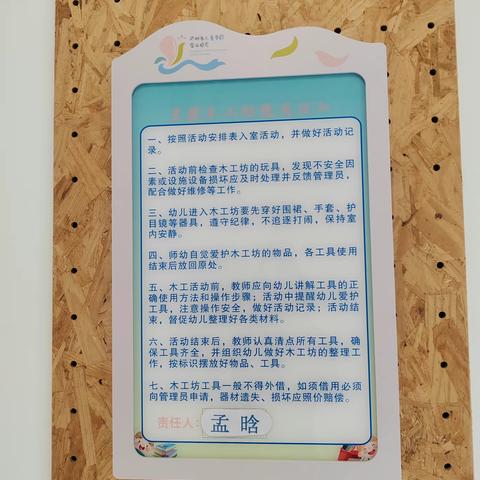 一、按照活动安排表入室活动，并做好活动记
录。
二、活动前检查木工坊的玩具，发现不安全因
素或设施设备损坏应及时处理并反馈管理员，
配合做好维修等工作。
三、幼儿进入木工坊要先穿好围裙、手套、护
目镜等器具，遵守纪律，不追逐打闹，保持室
内安静。
四、师幼自觉爱护木工坊的物品，各工具使用
结束后放回原处。
五、木工活动前，教师应向幼儿讲解工具的正
确使用方法和操作步骤；活动中提醒幼儿爱护
工具，注意操作安全，做好活动记录；活动结
束，督促幼儿整理好各类材料。
六、活动结束后，教师认真清点所有工具，确
保工具齐全，并组织幼儿做好木工坊的整理工
作，按标识摆放好物品、工具。
七、木工坊工具一般不得外借，如须借用必须
向管理员申请，器材遗失、损坏应照价赔偿。
责任人：孟晗